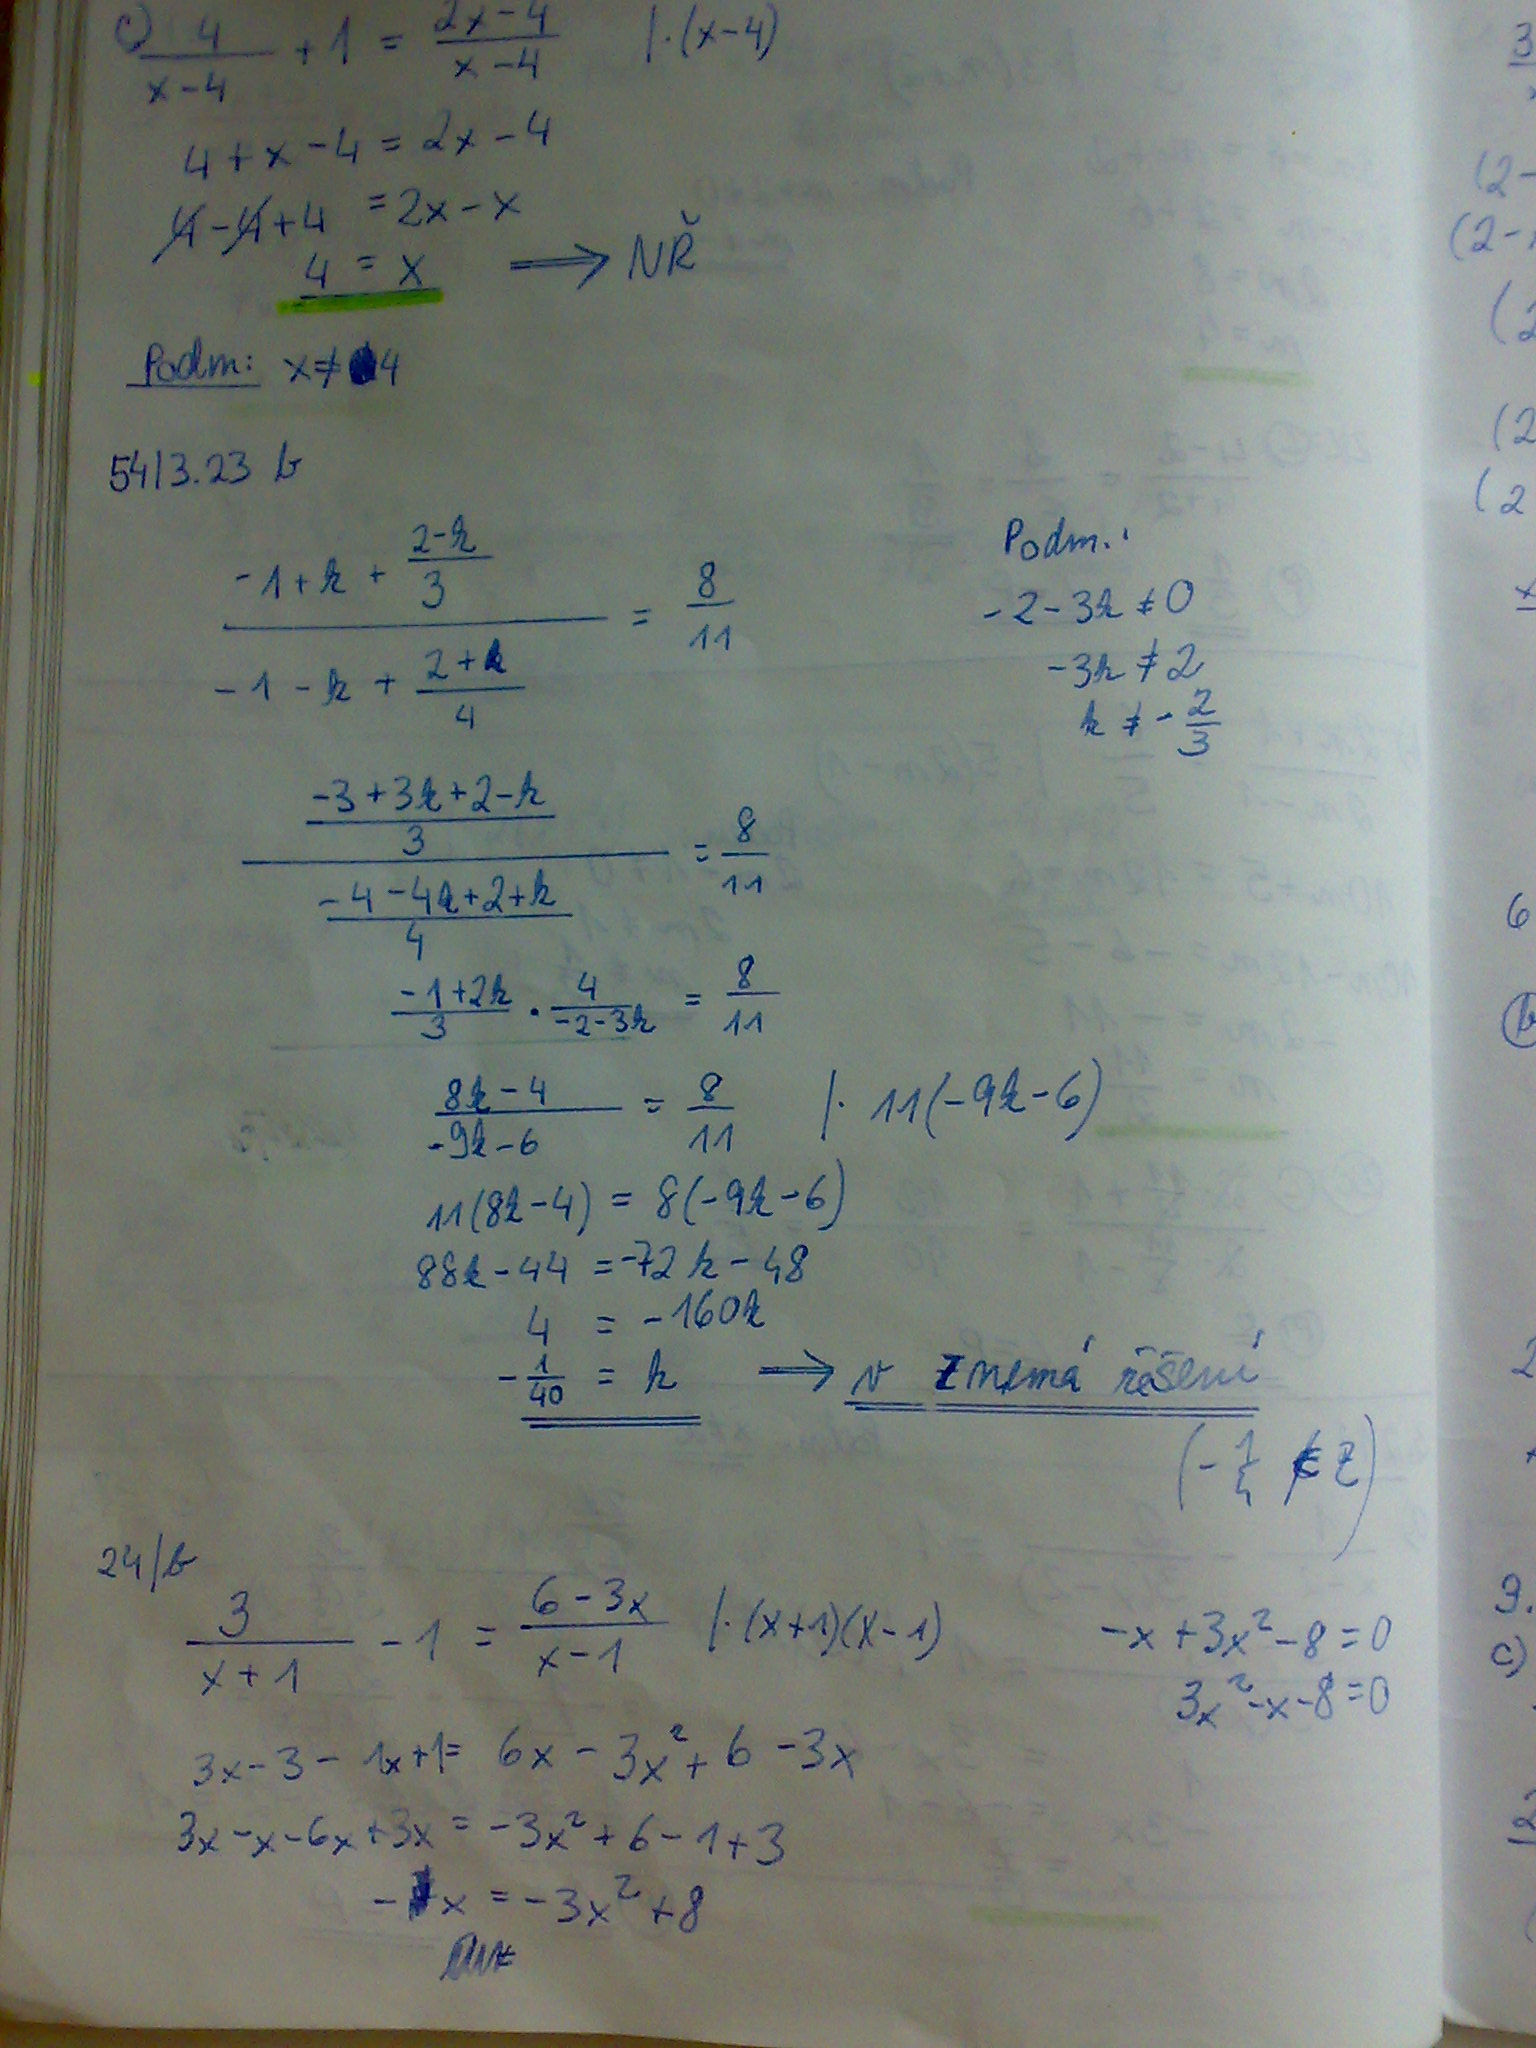 c) 4/(x-4) + 1 = (2x-4)/(x-4) |·(x-4)
4+x-4 = 2x-4
4-4+4 = 2x-x
4 = x ⟹ NŘ
Podm: x≠4
54/3.23 b
(-1+k+(2-k)/3)/(-1-k+(2+k)/4) = 8/11
Podm.:
-2-3k≠0
-3k≠2
k≠-2/3
((-3+3k+2-k)/3)/((-4-4k+2+k)/4) = 8/11
(-1+2k)/3 · 4/(-2-3k) = 8/11
(8k-4)/(-9k-6) = 8/11 |· 11(-9k-6)
11(8k-4) = 8(-9k-6)
88k-44 = -72k-48
4 = -160k
-1/40 = k ⟹ v Z nemá řešení
(-1/4 ∉ Z)
24/b
3/(x+1) - 1 = (6-3x)/(x-1) |·(x+1)(x-1)
3x-3-1x+1= 6x-3x²+6-3x
3x-x-6x+3x = -3x²+6-1+3
-x = -3x²+8
-x+3x²-8=0
3x²-x-8=0
3
(2-
(2-
(2
(2
(2
x
6
b
2
9.
c)
12